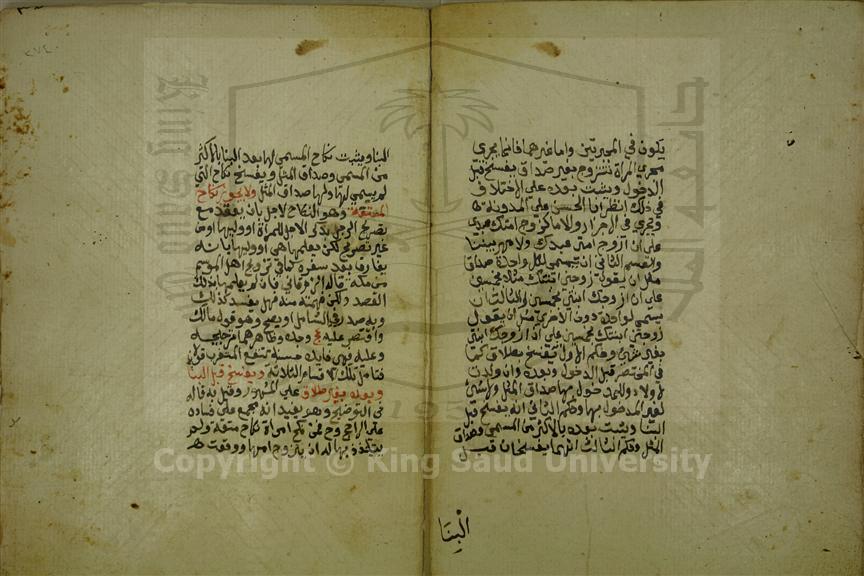 يكون في المجبرتين واما غيرهما فانما يجري
مجرى المراة تتزوج بغير صداق يفسخ قبل
الدخول ويثبت بعده على الاختلاف
في ذلك انظر ابا الحسن على المدونة
ويجري في الاحرار والاماء كزوج امتك عبدي
على ان ازوج امتي عبدك ولا مهر بيننا
والقسم الثاني ان يسمى لكل واحدة صداق
مثل ان يقول زوجني ابنتك مثلا بخمسين
على ان ازوجك ابنتي بخمسين والثالث ان
يسمى لواحدة دون الاخرى مثل ان يقول
زوجني ابنتك بخمسين على ان ازوجك ابنتي
بغير شيء وحكم الاول يفسخ بطلاق كما
في المختصر قبل الدخول وبعده وان ولدت
الاولاد وللمدخول بها صداق المثل ولا شيء
لغير المدخول بها وحكم الثاني انه يفسخ قبل
البنا ويثبت بعده بالاكثر من المسمى وصداق
المثل وحكم الثالث انهما يفسخان قبل
البنا
البنا ويثبت نكاح المسمى لها بعد البنا بالاكثر
من المسمى وصداق المثل ويفسخ نكاح التي
لم يسمى لها ولها صداق المثل ولا يجوز نكاح
المتعة وهو النكاح لاجل بان يعقد مع
تصريح الرجل بذكر الاجل للمراة او وليها او من
غير تصريح لكن يعلمها هي او وليها بانه
يفارقها بعد سفره كما في تزوج اهل الموسم
من مكة قاله الزرقاني فان لم يعلمها بذلك
القصد ولكن فهمته منه فهل يفسد كذلك
وبه صدر في الشامل او يصح وهو قول مالك
واقتصر عليه
وعليه وهي فايدة حسنة تنفع المتغرب
ويفسخ قبل البنا
وبعده بغير طلاق على المشهور وقيل به قاله
في التوضيح وهو يفيد انه مجمع على فساده
على الراجح
ان يتزوج امها ووقعت
Copyright © King Saud University
جامعة
1957